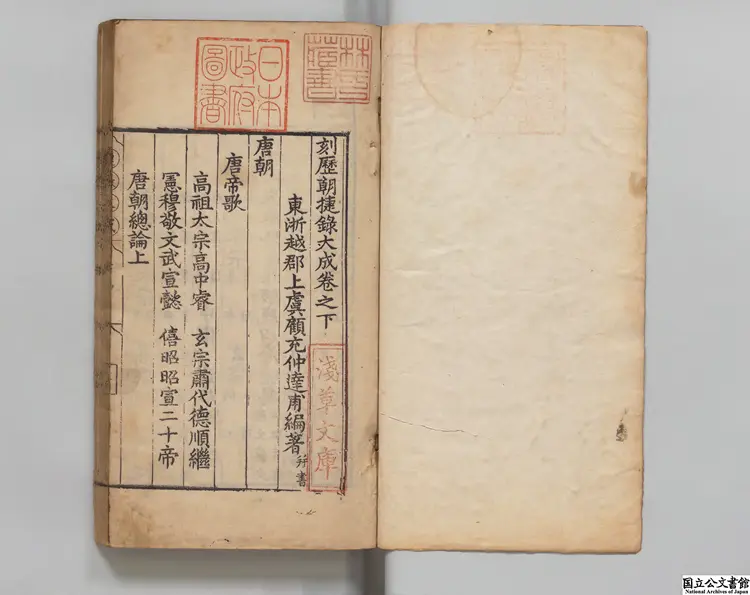 刻歷朝捷錄大成卷之下
東浙越郡上虞顧充仲達甫編著 幷書
唐朝
唐帝歌
高祖太宗高中睿 玄宗肅代德順繼
憲穆敬文武宣懿 僖昭昭宣二十帝
唐朝總論上
日本政府圖書
淺草文庫
国立公文書館
National Archives of Japan